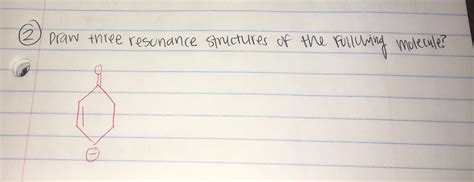 ② Draw three resonance structures of the following molecule?
O
⊖